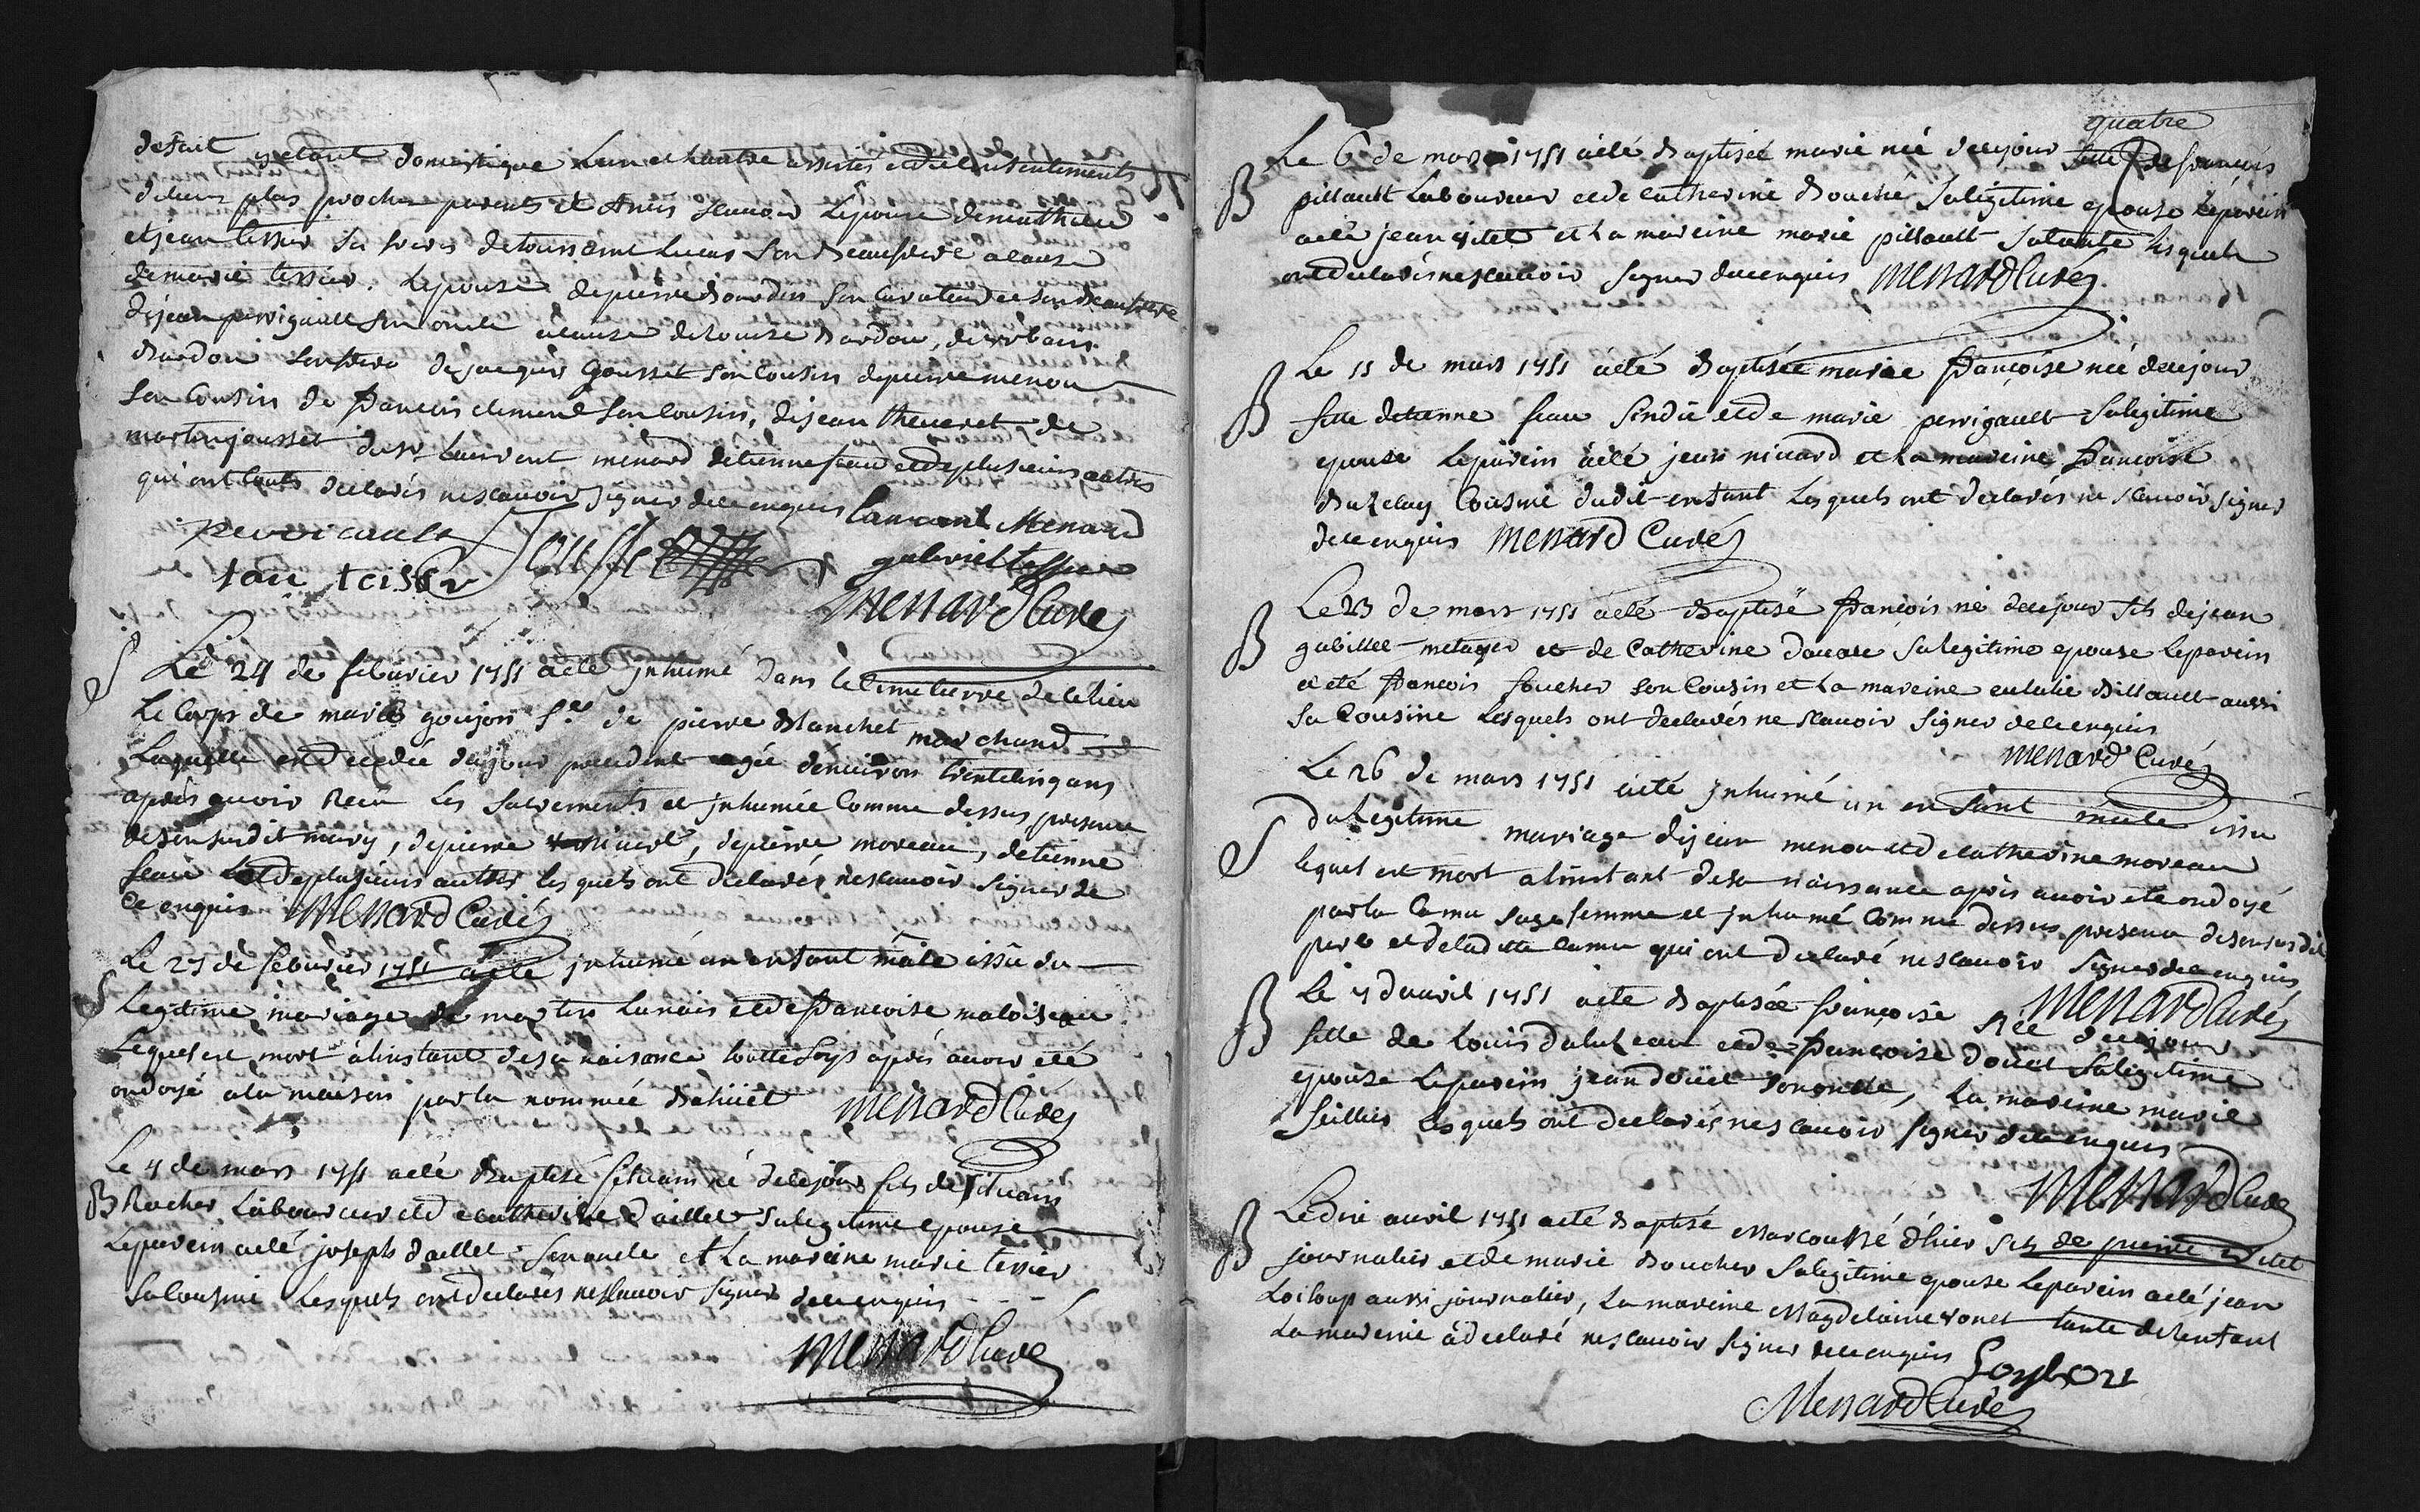 defait y etant domestique lun et lautre assistés et du consentements
de leurs plus proche parents et Amis scauoir Lepoux de mathieu
et jean tessier ses freres de toussaint Lucas son beaufrere a cause
de marie tessier. Lepouse de pierre bourdin son Curateur et son beaufrere
de jean perrigault son oncle a cause de Louise bardou, de urbain
bardou son frere de jacques Gousset son Cousin de pierre menou
son Cousin de francois clement son Cousin, de jean theueret de
martin jousset du sr Laurent menard detienne feau et de plusieurs autres
qui ont touts declarés ne scauoir signer de ce enquis Laurant Menard
perricault
gabriel tessier
jan teisier
menard Curé
S Le 24 de feburier 1751 a eté jnhumé dans le Cimetierre de ce lieu
Le Corps de marie goujon f.e de pierre blanchet marchand
Laquelle est decedée du jour precedent agée denuiron trente cinq ans
apres auoir Receu Les sacrements et jnhumée Comme dessus presence
de son susdit mary, de pierre, de pierre moreau, detienne
feau et de plusieurs autres les quels ont declarés ne scauoir signer de
Ce enquis menard Curé
S Le 27 de feburier 1751 a eté jnhumé un enfant mâle issu du
Legitime mariage de martin Lunais et de francoise maloiseau
Lequel est mort à linstant de sa naisance touttefoys aprés auoir eté
ondoyé a la maison par la nommée behuet menard Curé
Le 4 de mars 1751 a eté baptisé siluain né de ce jour fils de siluain
B Rocher Laboureur et de catherine daillet sa legitime epouse
Le parein a eté joseph daillet son oncle et La mareine marie tessier
sa Cousine Lesquels ont declarés ne scauoir signer de ce enquis
menard Curé
quatre
B Le 6 de mars 1751 a eté baptisée marie née de ce jour fille de francois
pillault Laboureur et de catherine bouché sa legitime epouse Le parein
a eté jean uitet et La mareine marie pillault sa tante lesquels
ont declarés ne scauoir signer de ce enquis menard Curé
B Le 11 de mars 1751 a eté baptisée marie francoise née de ce jour
fille detienne feau sindic et de marie perrigault sa legitime
epouse Le parein a eté jean nivard et La mareine francoise
Cousine dudit enfant Lesquels ont declarés ne scauoir signer
de ce enquis menard Curé
B Le 23 de mars 1751 a eté baptisé francois né de ce jour fils de jean
gabillet metayer et de Catherine douare sa legitime epouse Le parein
a eté francois foucher son Cousin et La mareine eulalie billault aussi
sa Cousine Lesquels ont declarés ne scauoir signer de ce enquis
menard Curé
Le 26 de mars 1751 a eté jnhumé un enfant mâle issu
S du Legitime mariage de jean menou et de catherine moreau
lequel est mort a linstant de sa naissance apres auoir eté ondoyé
par la Camu sage femme et jnhumé Comme dessus presence de son susdit
pere et de laditte Camu qui ont declaré ne scauoir signer de ce enquis
menard Curé
B Le 7 dauril 1751 a eté baptisée francoise née de ce jour
fille de Louis daluzeau et de francoise douet sa legitime
epouse Le parein jean doüet son oncle, La mareine marie
feillier lesquels ont declarés ne scauoir signer de ce enquis
menard Curé
B Le dix auril 1751 a eté baptisé Marcou né d'hier fils de pierre uitet
journalier et de marie boucher sa legitime epouse Le parein a eté jean
Loiloup aussi journalier, La mareine Magdelaine uonet tante de lenfant
La mareine a declaré ne scauoir signer de ce enquis
Menard Curé